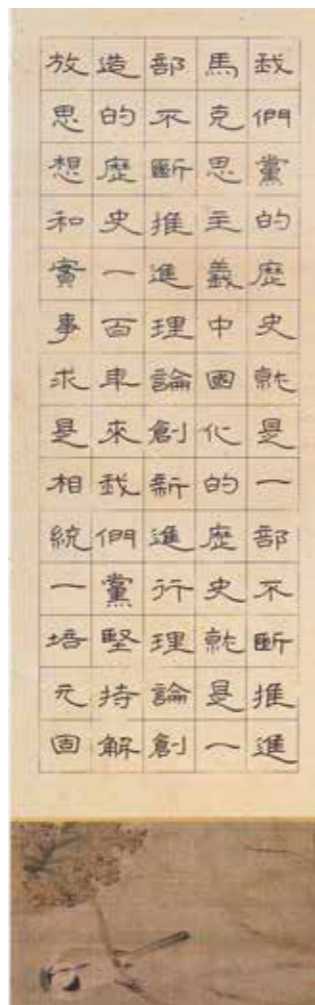 我們黨的歷史就是一部不斷推進
馬克思主義中國化的歷史就是一
部不斷推進理論創新進行理論創
造的歷史一百年來我們黨堅持解
放思想和實事求是相統一培元固